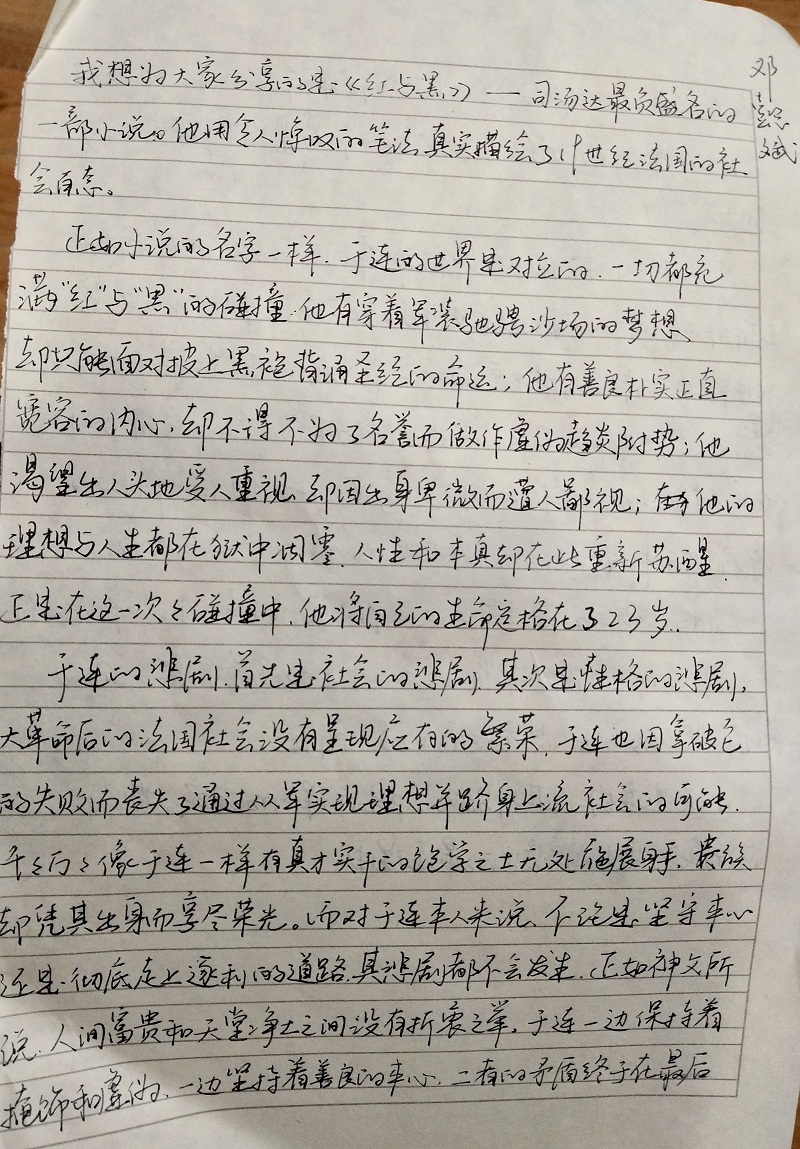 我想为大家分享的是《红与黑》——司汤达最负盛名的
一部小说。他用令人惊叹的笔法真实描绘了19世纪法国的社
会百态。
正如小说的名字一样，于连的世界是对立的，一切都充
满"红"与"黑"的碰撞。他有穿着军装驰骋沙场的梦想
却只能面对披上黑袍背诵圣经的命运；他有善良朴实正直
宽容的内心，却不得不为了名誉而做作虚伪趋炎附势；他
渴望出人头地受人重视，却因出身卑微而遭人鄙视；他的
理想与人生都在狱中凋零，人性和本真却在此重新苏醒。
正是在这一次々碰撞中，他将自己的生命定格在了23岁。
于连的悲剧，首先是社会的悲剧，其次是性格的悲剧，
大革命后的法国社会没有呈现应有的繁荣，于连也因拿破仑
的失败而丧失了通过从军实现理想并跻身上流社会的可能，
千々万々像于连一样有真才实干的饱学之士无处施展身手，贵族
却凭其出身而享尽荣光。而对于连本人来说，不论是坚守本心
还是彻底走上逐利的道路，其悲剧都不会发生，正如神父所
说，人间富贵和天堂净土之间没有折衷之举，于连一边保持着
掩饰和虚伪，一边坚持着善良的本心，二者的矛盾终于在最后
邓
斌